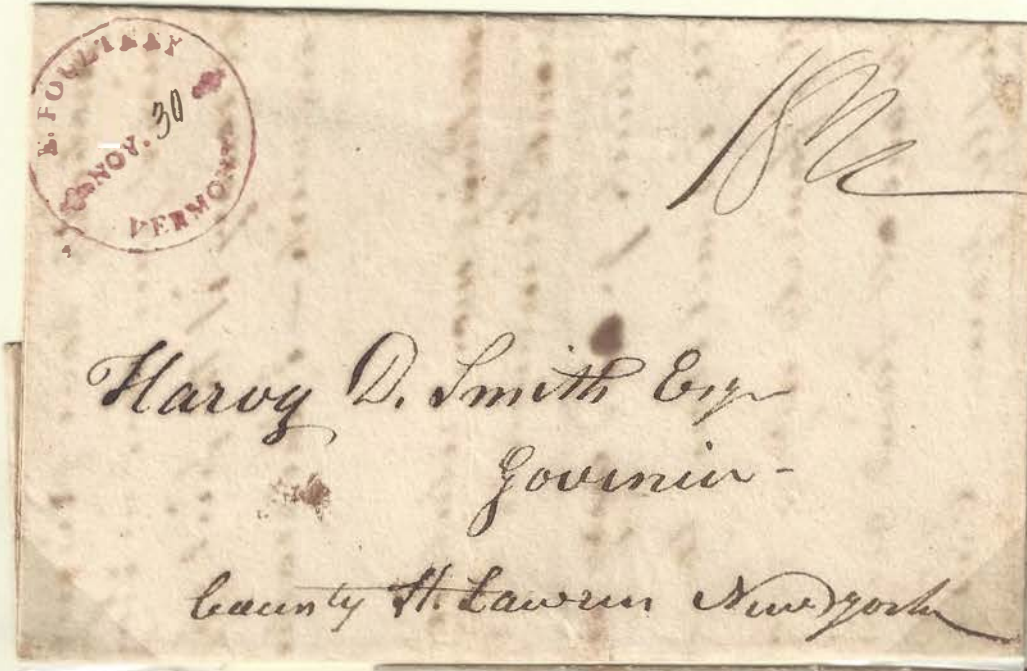 E. POULTNEY
NOV. 30
VERMONT
18¾
Harvy D. Smith Esqr
Goviniur -
County St. Lawren New york